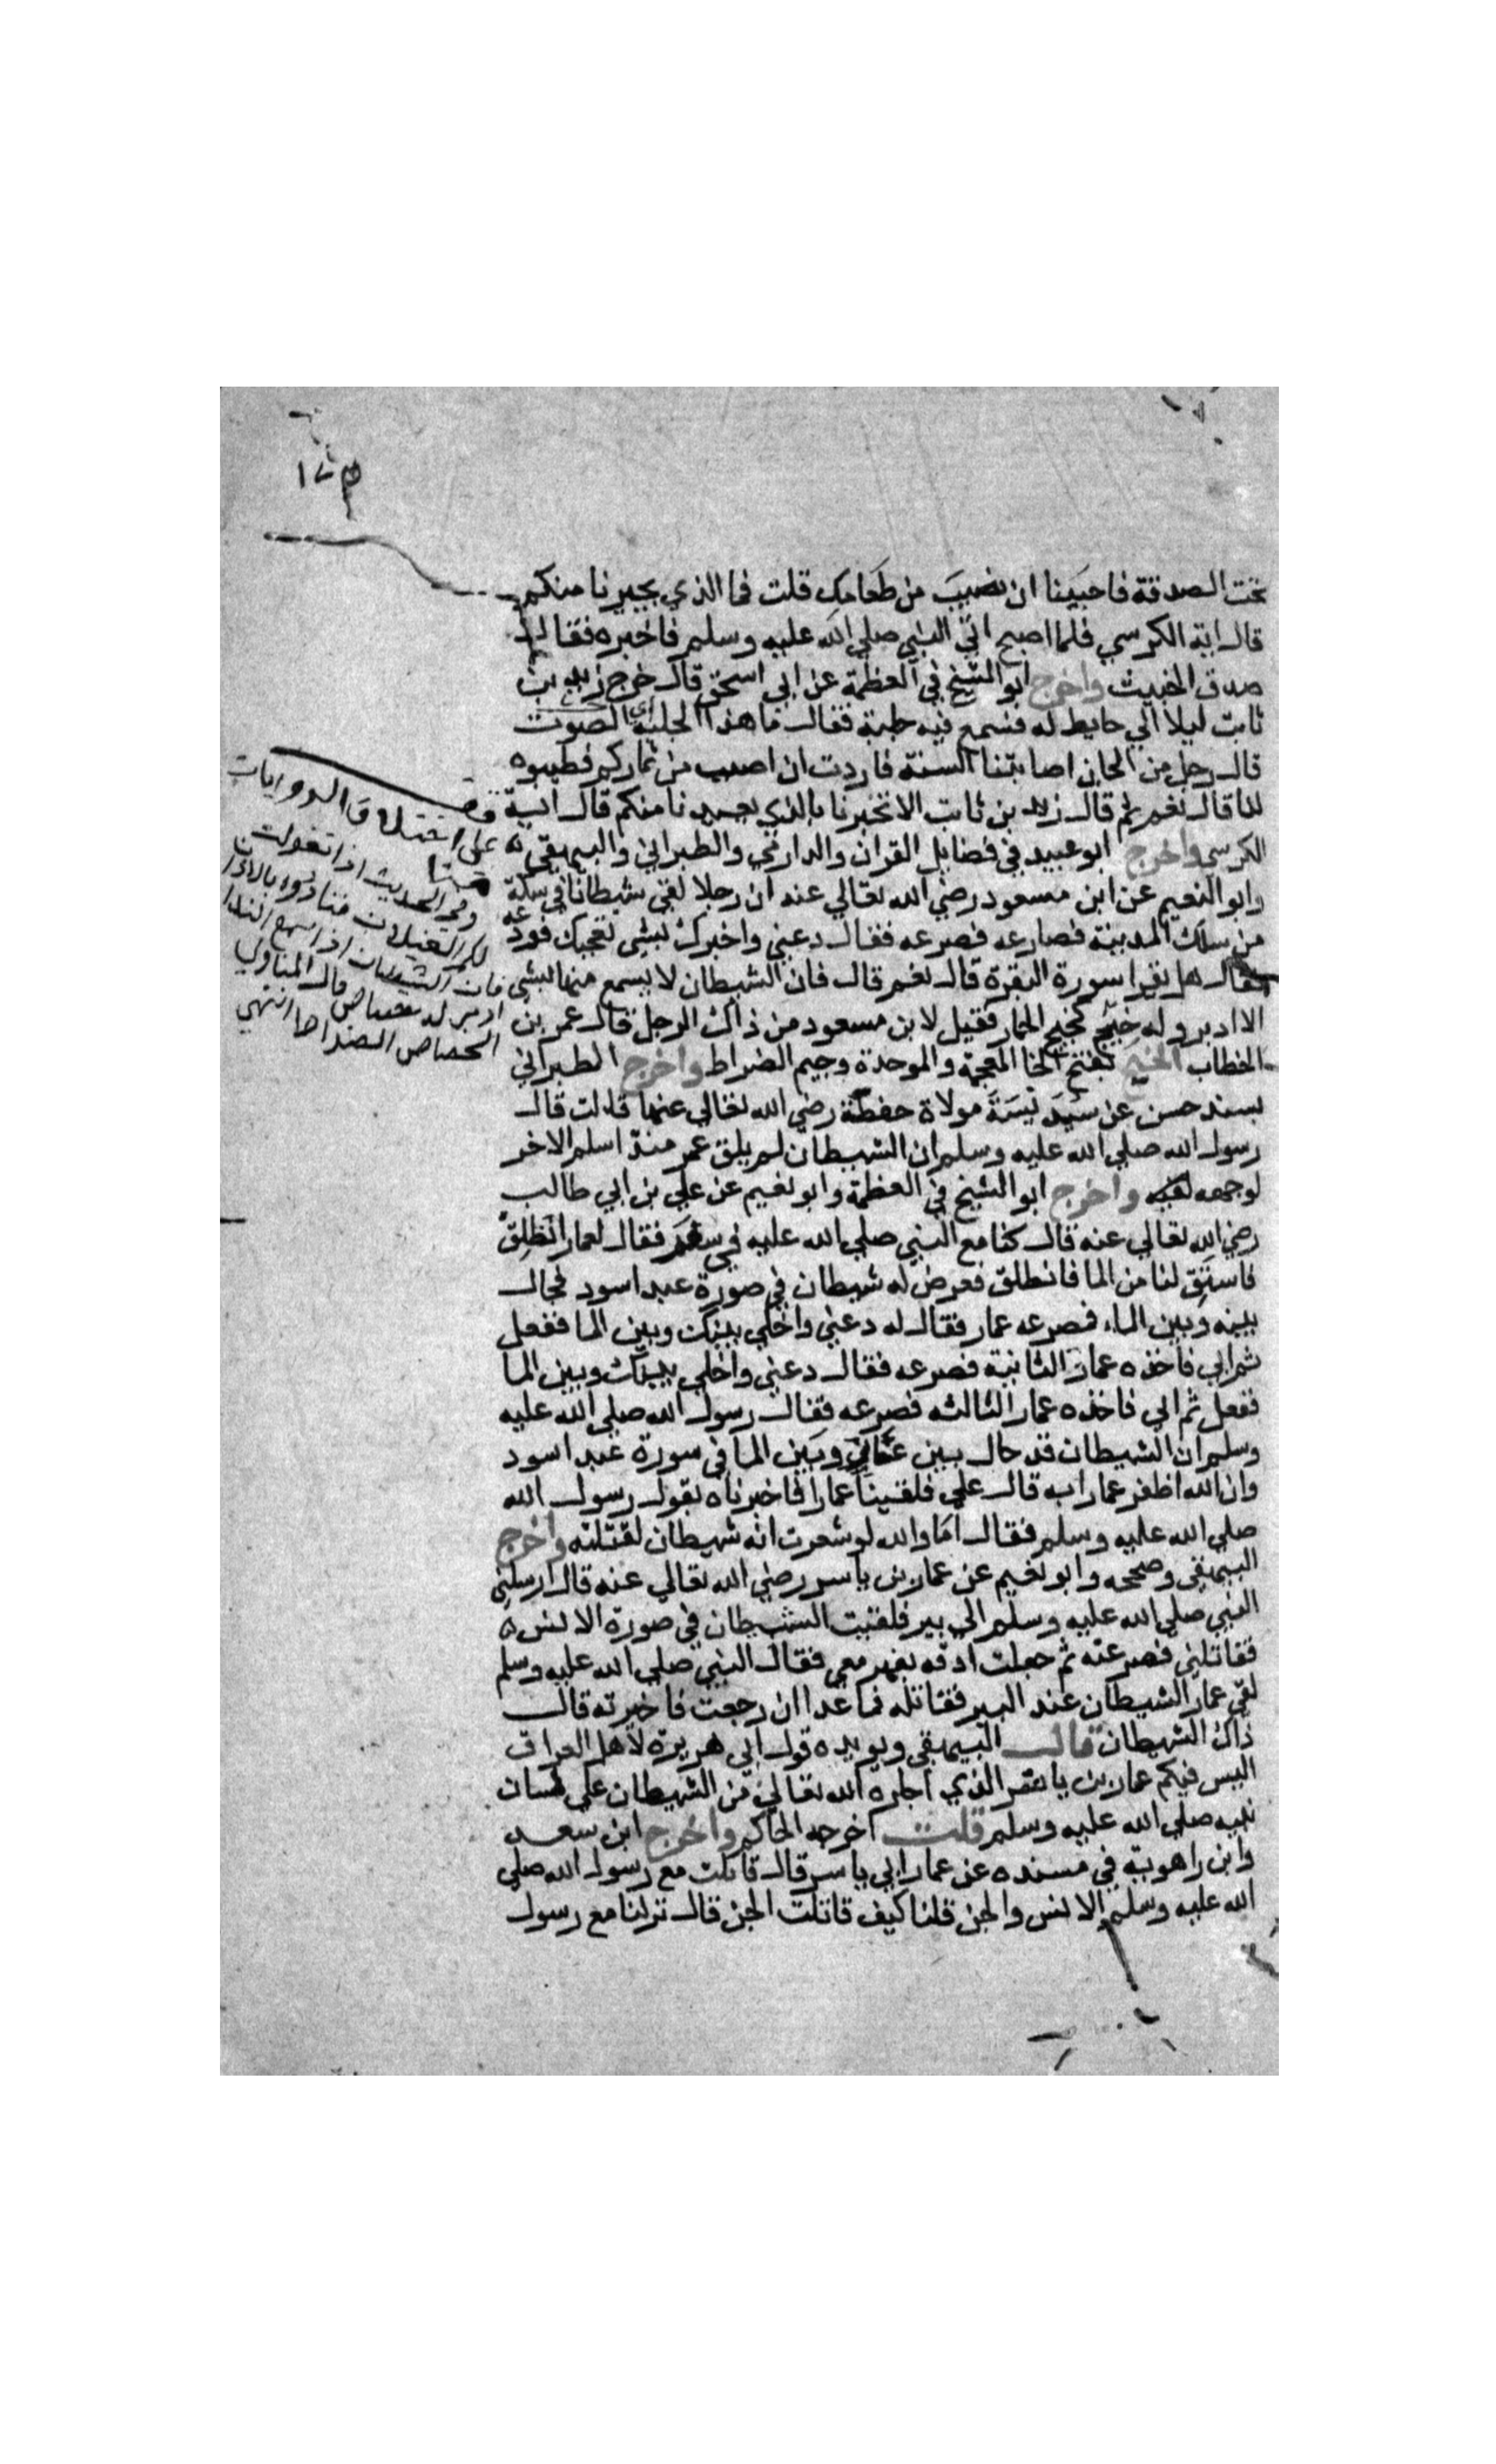 ١٤٣
تحت الصدقة فاحببنا ان نصيب من طعامك قلت فما الذي يجيرنا منكم
قال اية الكرسي فلما اصبح اتي النبي صلي الله عليه وسلم فاخبره فقال
صدق الخبيث واخرج ابو الشيخ في العظمة عن ابي اسحق قال خرج زيد بن
ثابت ليلا الي حايط له فسمع فيه جلبة فقال ما هذا الجلبة اي الصوت
قال رجل من الجان اصابتنا السنة فاردت ان اصيب من ثماركم فطيبوه
لنا قال نعم ثم قال زيد بن ثابت الا تخبرنا بالذي يعيذنا منكم قال اية
الكرسي واخرج ابو عبيد في فضايل القران والدارمي والطبراني والبيهقي
وابو النعيم عن ابن مسعود رضي الله تعالي عنه ان رجلا لقي شيطانا في سكة
من سكك المدينة فصارعه فصرعه فقال دعني واخبرك بشي تعجبك فودعه
فقال هل تقرا سورة البقرة قال نعم قال فان الشيطان لا يسمع منها بشي
الا ادبر وله خبج كخبج الحمار فقيل لابن مسعود من ذاك الرجل قال عمر بن
الخطاب الخبج بفتح الخا المعجمة والموحدة وجيم الضراط واخرج الطبراني
بسند حسن عن سديسة مولاة حفصة رضي الله تعالي عنها قالت قال
رسول الله صلي الله عليه وسلم ان الشيطان لم يلق عمر منذ اسلم الا خر
لوجهه واخرج ابو الشيخ في العظمة وابو نعيم عن علي بن ابي طالب
رضي الله تعالي عنه قال كنا مع النبي صلي الله عليه في سفر فقال لعمار انطلق
فاستق لنا من الما فانطلق فعرض له شيطان في صورة عبد اسود فحال
بينه وبين الماء فصرعه عمار فقال له دعني واخلي بينك وبين الما ففعل
ثم ابي فاخذه عمار الثانية فصرعه فقال دعني واخلي بينك وبين الما
ففعل ثم ابي فاخذه عمار الثالثه فصرعه فقال رسول الله صلي الله عليه
وسلم ان الشيطان قد حال بين عمار وبين الما في سورة عبد اسود
وان الله اظفر عمارا به قال علي فلقينا عمارا فاخبرناه بقول رسول الله
صلي الله عليه وسلم فقال اما والله لو شعرت انه شيطان لقتلته واخرج
البيهقي وصححه وابو نعيم عن عمار بن ياسر رضي الله تعالي عنه قال ارسلني
النبي صلي الله عليه وسلم الي بير فلقيت الشيطان في صورة الانس
فقاتلني فصرعته ثم جعلت ادقه بفهر معي فقال النبي صلي الله عليه وسلم
لقي عمار الشيطان عند البير فقاتله فما عدا ان رجعت فاخبرته قال
ذاك الشيطان قال البيهقي ويويده قول ابي هريرة لاهل العراق
اليس فيكم عمار بن ياسر الذي اجاره الله تعالي من الشيطان علي لسان
نبيه صلي الله عليه وسلم قلت اخرجه الحاكم واخرج ابن سعد
وابن راهوية في مسنده عن عمار ابي ياسر قال قاتلت مع رسول الله صلي
الله عليه وسلم الانس والجن قلنا كيف قاتلت الجن قال نزلنا مع رسول
علي اختلاف الروايات
وفي الحديث اذا تغولت
لكم الغيلان فنادوه بالاذان
فان الشيطان اذا سمع الندا
ادبر له حصاص قال المناوي
الحصاص الضراط انتهي